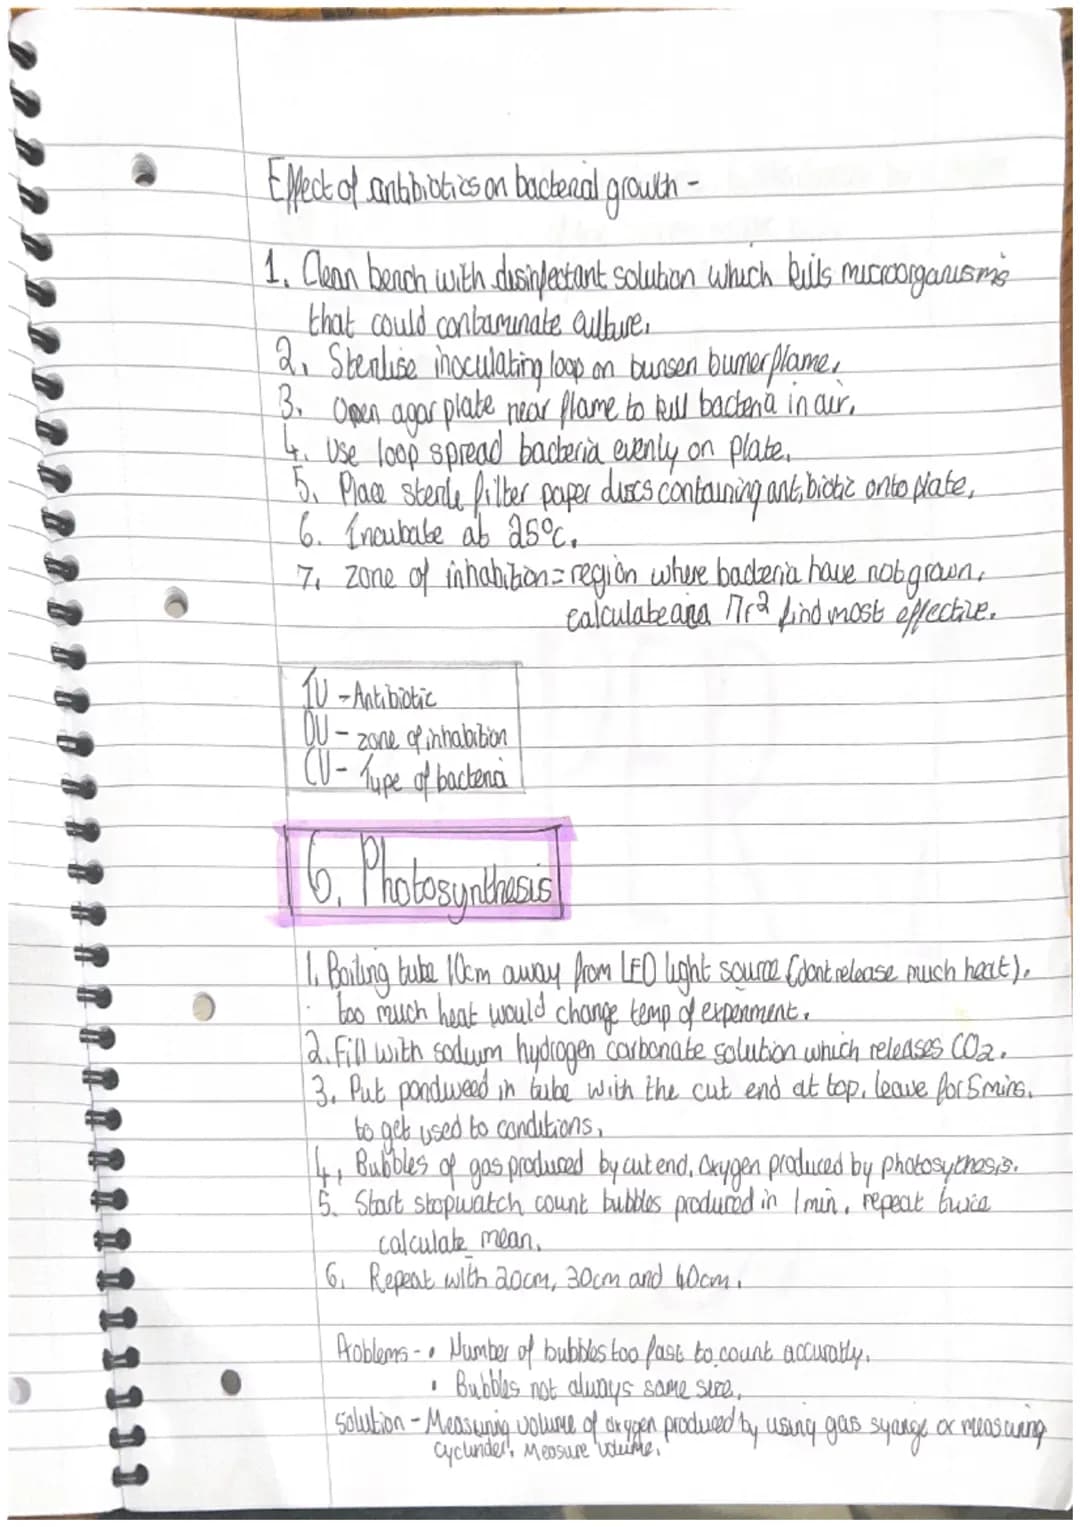 Effect of antibiotics on bacterial growth -
1. Clean bench with disinfectant solution which kills microorganisms
that could contaminate culture.
2. Sterilise inoculating loop on bunsen burner flame.
3. Open agar plate near flame to kill bacteria in air.
4. Use loop spread bacteria evenly on plate.
5. Place sterile filter paper discs containing antibiotic onto plate.
6. Incubate at 25°C.
7. zone of inhabition = region where bacteria have not grown.
calculate area πr² find most effective.
IV - Antibiotic
DV - zone of inhabition
CV - Type of bacteria
6. Photosynthesis
1. Boiling tube 10cm away from LED light source (dont release much heat).
· too much heat would change temp of experiment.
2. Fill with sodium hydrogen carbonate solution which releases CO2.
3. Put pondweed in tube with the cut end at top. leave for 5mins.
to get used to conditions.
4. Bubbles of gas produced by cut end. Oxygen produced by photosythesis.
5. Start stopwatch count bubbles produced in 1min. repeat twice
calculate mean.
6. Repeat with 20cm, 30cm and 40cm.
Problems - • Number of bubbles too fast to count accuratly.
• Bubbles not always same size.
Solution - Measuring volume of oxygen produced by using gas syringe or measuring
cyclinder. Measure volume.